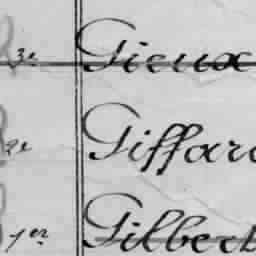 3e Gieux
2e Giffard
1er Gilbert